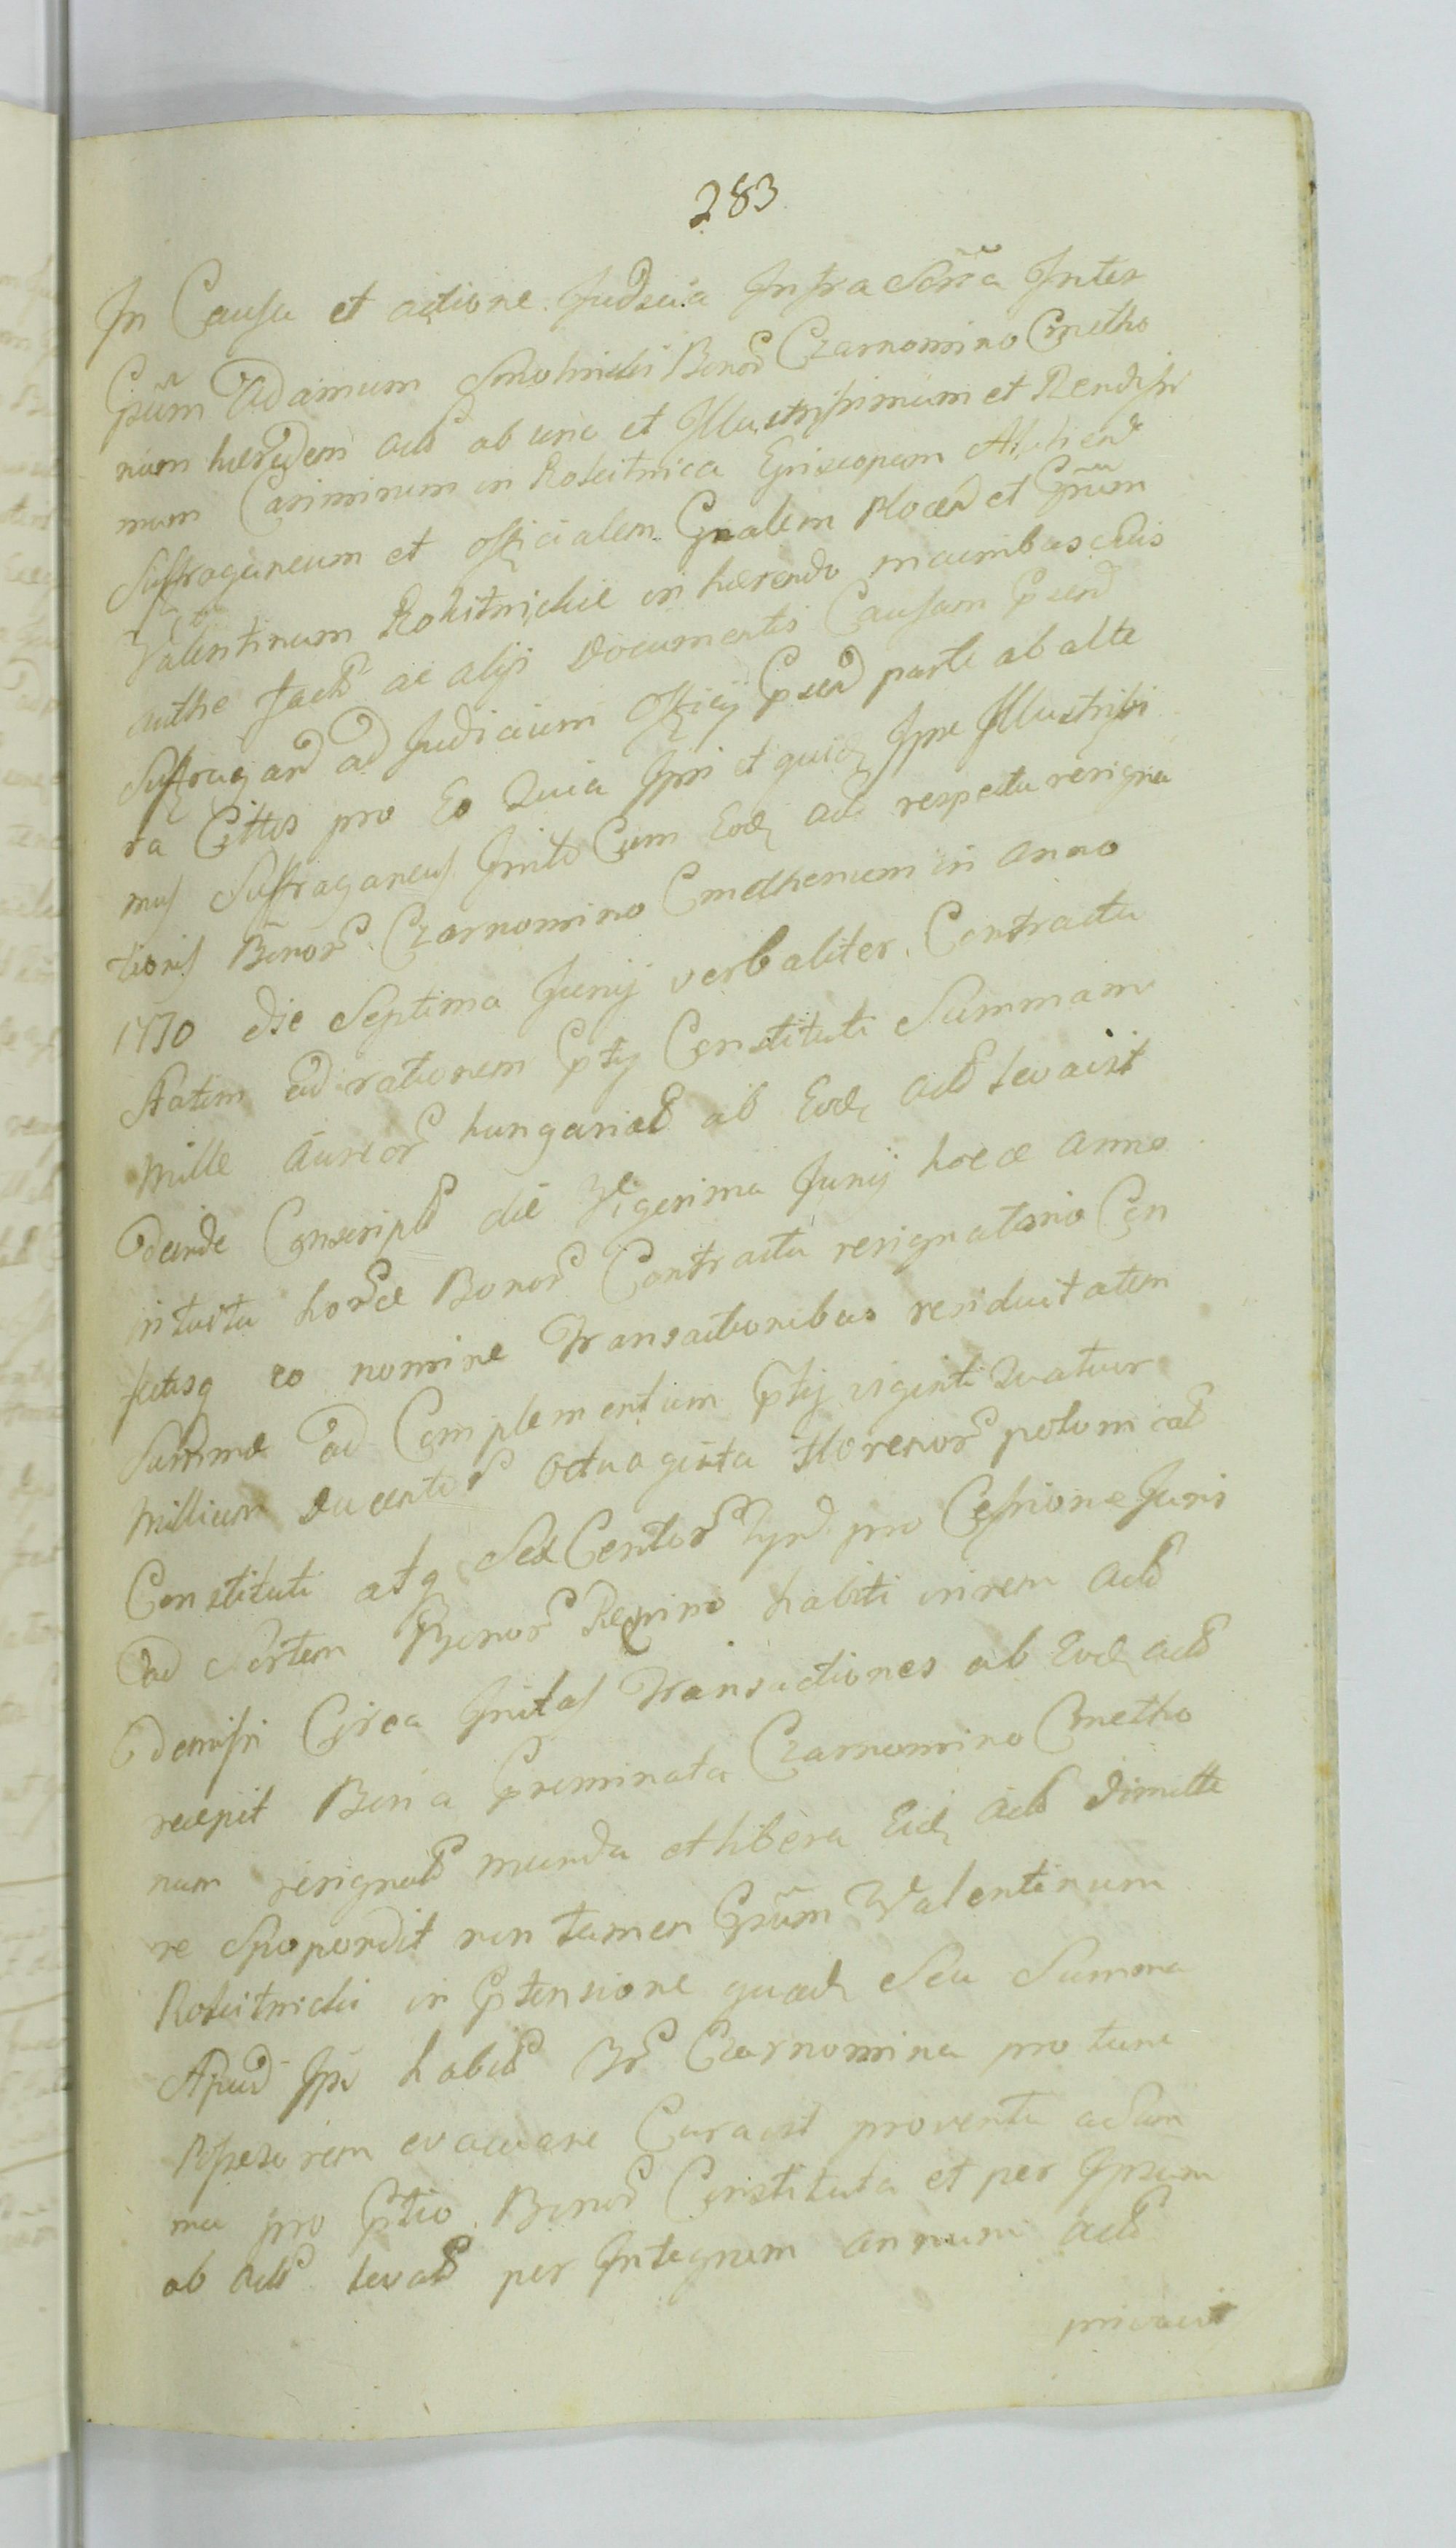 283
In Causa et actione Infra Scr̃a Inter
Gr̃um Adamum Smolinski Bonor Czarnomino Cmetho
num hæredem act ab una et Illustrissimum et Rendissi
mum Casimirum in Rokitnica Episcopum
Suffraganeum et officialem Gnalem Plocen et Gr̃um
Valentinum Rokitnickie in hærendo manibus
authe fact ac alijs Documentis Causam
Suffragan ad Judicium Officij parte ab alte
ra Cittos pro Eo Quia Ipsi et quid Ipse Illustrissi
mus Suffraganeus Inito Cum Eod act respectu resigna
tionis Bonor Czarnomino Cmethonum in anno
1770 die Septima Junij verbaliter Contractu
Statim ad rationem Ptij Constituti Summam
Mille Aureor hungarical ab Eod act levavit
Deinde Conscript die Vigesima Junij hocce anno
intuitu horce Bonor Contractu resignatorio Con
fectisq eo nomine Transactionibus residuitatem
Summæ ad Complementum Ptij viginti Quatuor
Millium Ducentor octuaginta florenor polonical
Constituti atq Sex Centor pro Cessione Juris
ad Sortem Bonor habiti in rem act
Demissi Circa Initas Transactiones ab Eod act
recepit Bona Czarnomino Cmetho
num resignat munda et libera Eid act dimitte
re Spopondit non tamen Gr̃um Valentinum
Rokitnicki in Ptensione quad Seu Summa
Apud Ips habit Br Czarnomina pro tunc
Possesorem evacuare Curavit proventu a Sum
ma pro Ptio Bonor Constituta et per Ipsum
ab act levat per Integrum annum act
privavit